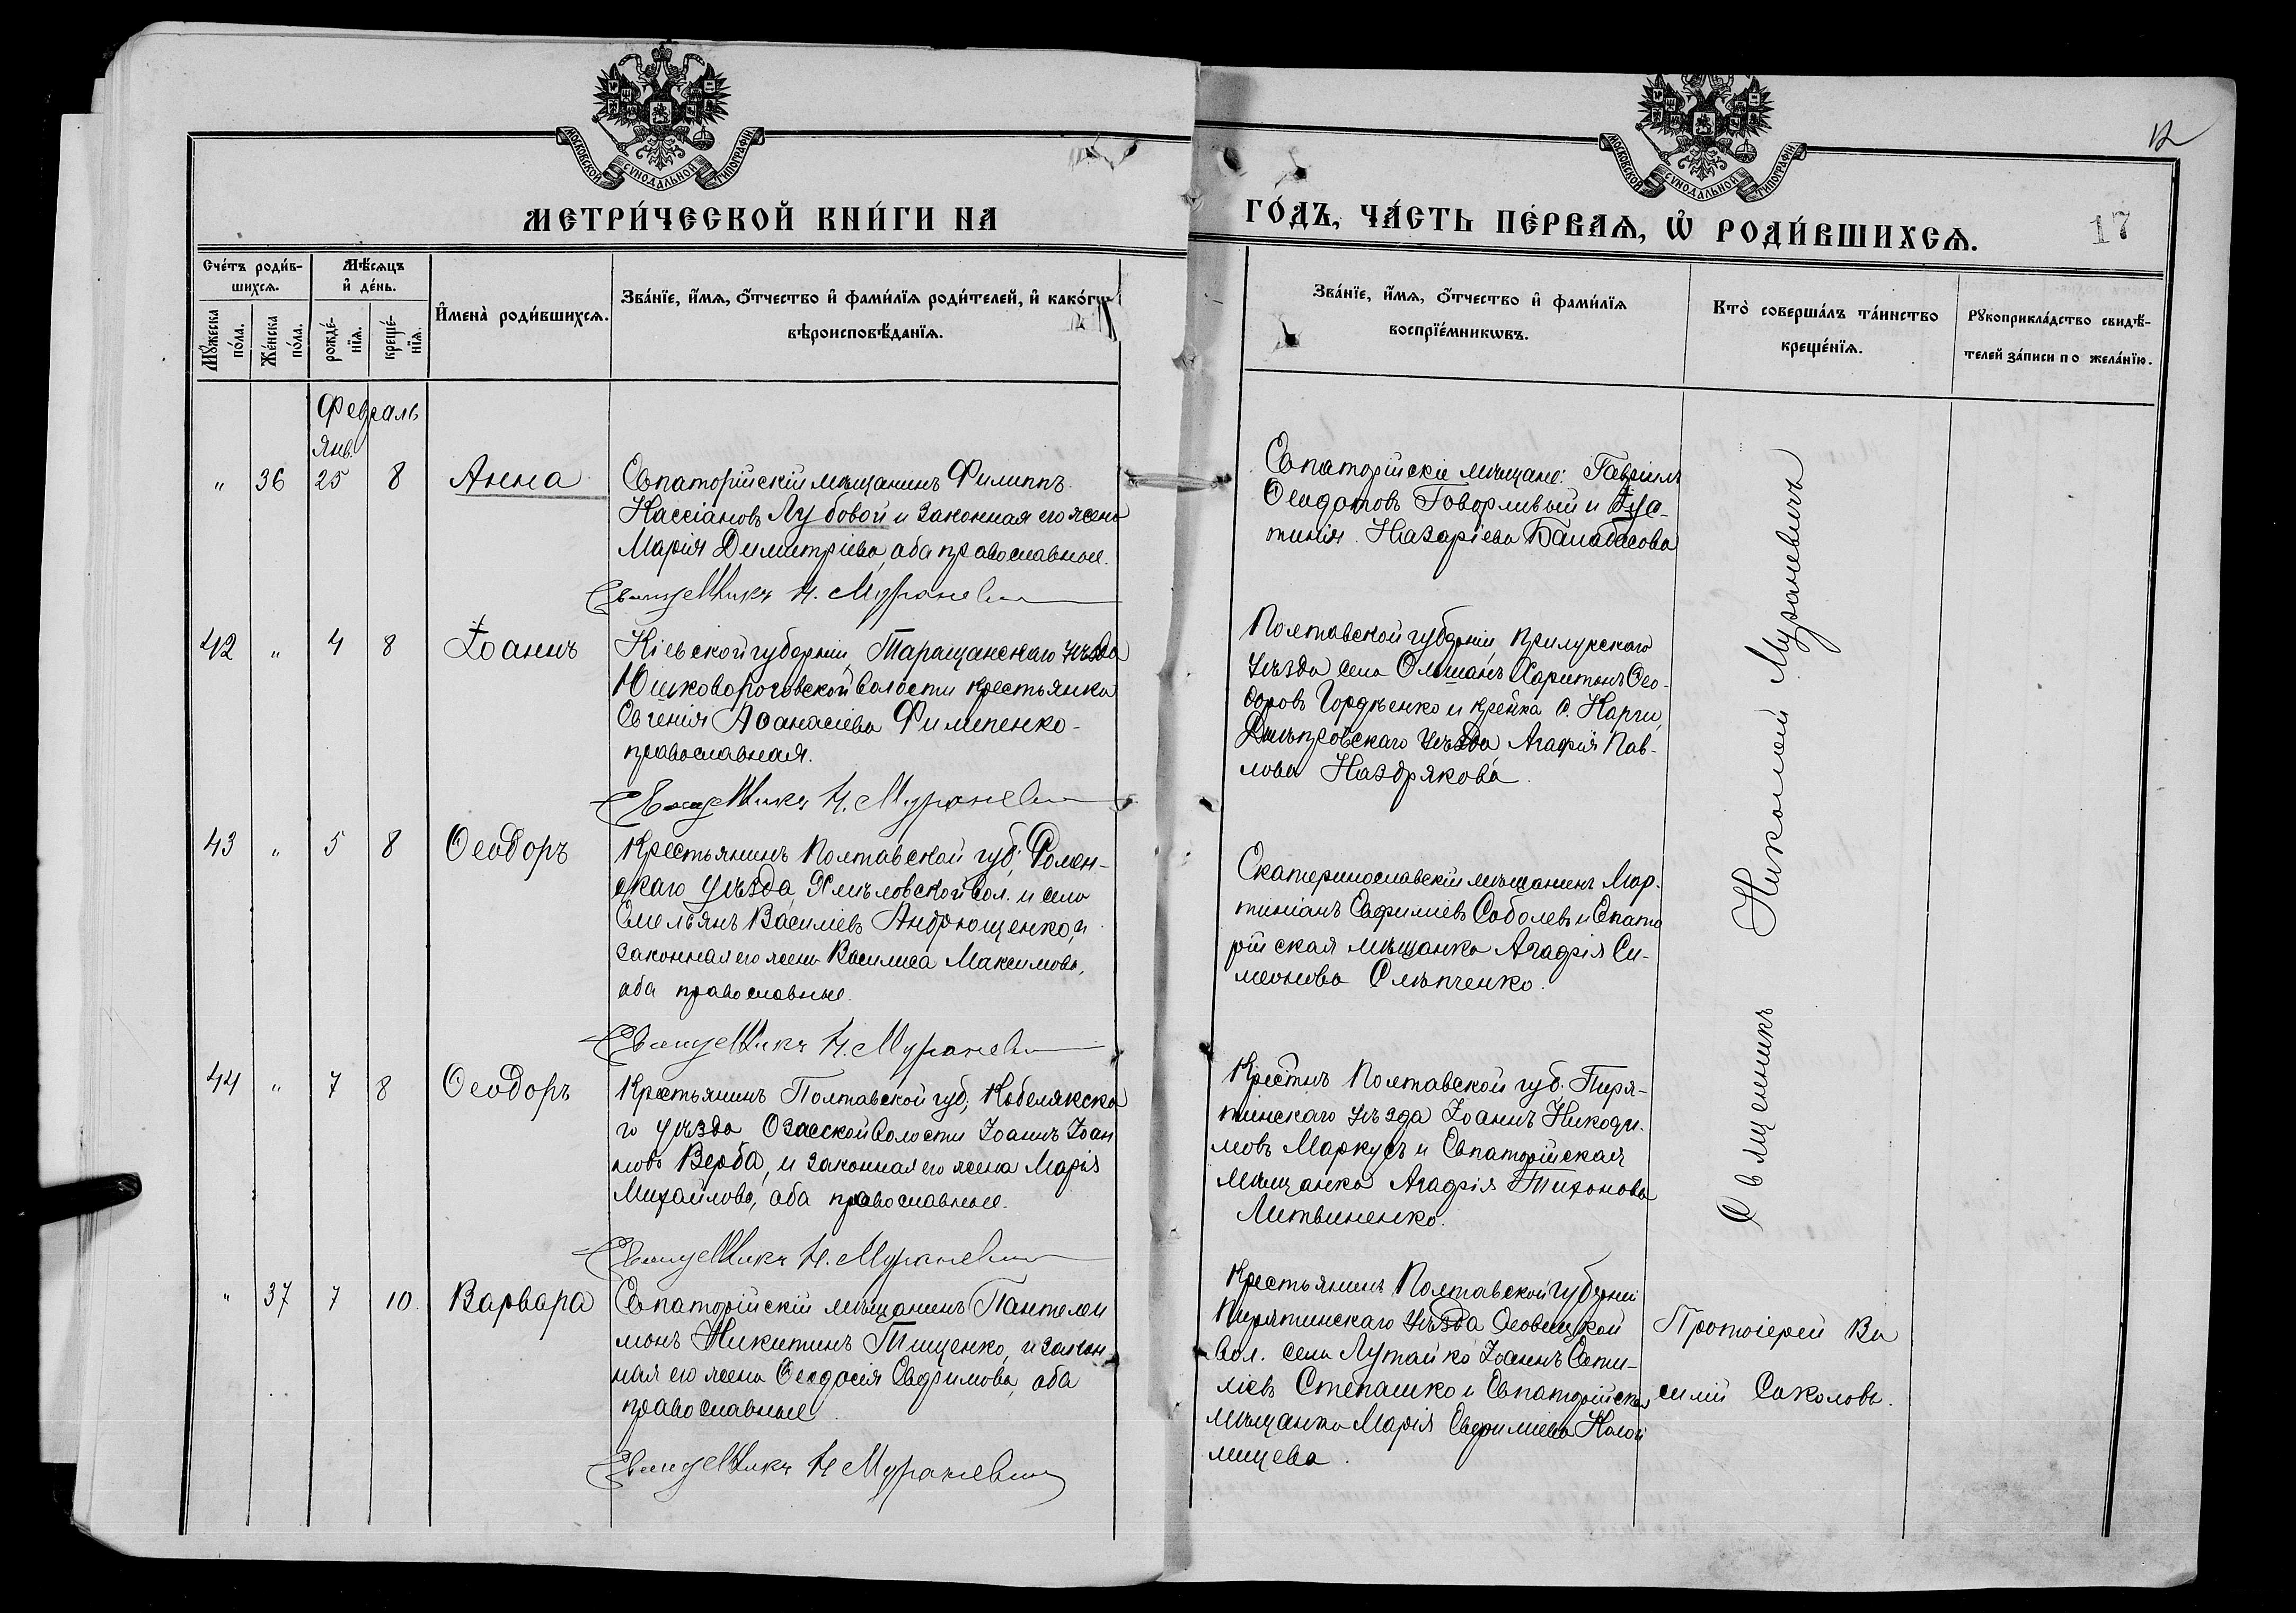 МОСКОВСКОЙ СѴНОДАЛЬНОЙ ТИПОГРАФІИ
МОСКОВСКОЙ СѴНОДАЛЬНОЙ ТИПОГРАФІИ
12
МЕТРИ́ЧЕСКОЙ КНИ́ГИ НА
ГО́ДЪ, ЧА́СТЬ ПЕ́РВАѦ, Ѽ РОДИ́ВШИХСѦ.
17
Сче́тъ роди́в-
шихсѧ.
Мѣ́сѧцъ
и҆ де́нь.
Мꙋ́жеска
по́ла.
Же́нска
по́ла.
рожде́-
нїѧ.
креще́-
нїѧ.
И҆мена̀ роди́вшихсѧ.
Зва́нїе, и҆́мѧ, ѻ҆́тчество и҆ фами́лїѧ роди́телей, и҆ како́гѡ
вѣроисповѣ́данїѧ.
Зва́нїе, и҆́мѧ, ѻ҆́тчество и҆ фами́лїѧ
воспрїе́мникѡвъ.
Кто̀ соверша́лъ та́инство
креще́нїѧ.
Рꙋкоприкла́дство свидѣ́-
телей за́писи по жела́нїю.
Февраль
Янв.
" 36 25 8 Анна
Евпаторійскій мѣщанинъ Филиппъ
Кассіановъ Лубовой и законная его жена
Марія Димитріева, оба православные.
Священникъ Н. Мураневич
Евпаторійскіе мѣщане: Гавріилъ
Ѳеодотовъ Говорливый и Іус-
тинія Назаріева Балабасова
42 " 4 8 Іоаннъ
Кіевской губерніи, Таращанскаго уѣзда
Юшковороговской волости крестьянка
Евгенія Аѳанасіева Филипенко -
православная.
Священникъ Н. Мураневич
Полтавской губерніи, Прилукскаго
уѣзда села Ольшанъ Харитонъ Ѳео-
доровъ Гордѣенко и кре-нка с. Карги,
Днѣпровскаго уѣзда Агафія Пав-
лова Наздрякова.
43 " 5 8 Ѳеодоръ
Крестьянинъ Полтавской губ., Ромен-
скаго уѣзда, Хмѣловской вол. и села
Емельянъ Василіевъ Андрющенко, и
законная его жена Василиса Максимова,
оба православные.
Священникъ Н. Мураневич
Екатеринославскій мѣщанинъ Мар-
тиніанъ Евфиміевъ Соболевъ и Евпато
рійская мѣщанка Агафія Си-
меонова Слѣпченко.
44 " 7 8 Ѳеодоръ
Крестьянинъ Полтавской губ., Кобелякска
го уѣзда Озерской волости Іоаннъ Іоан
новъ Верба, и законная его жена Марія
Михайлова, оба православные.
Священникъ Н. Мураневич
Крест-нъ Полтавской губ. Пиря-
тинскаго уѣзда Іоаннъ Никоди-
мовъ Маркусъ и Евпаторійская
мѣщанка Агафія Тихонова
Литвиненко.
Священникъ Николай Мураневичъ
" 37 7 10 Варвара
Евпаторійскій мѣщанинъ Пантелеи
монъ Никитинъ Тищенко, и закон-
ная его жена Ѳеодосія Евфимова, оба
православные
Священникъ Н Мураневич
Крестьянинъ Полтавской губерніи
Пирятинскаго уѣзда
вол. села Лутайка Іоаннъ
Степашко и Евпаторійская
мѣщанка Марія Евфиміева Коло
мицева.
Протоіерей Ва
силій Соколовъ.